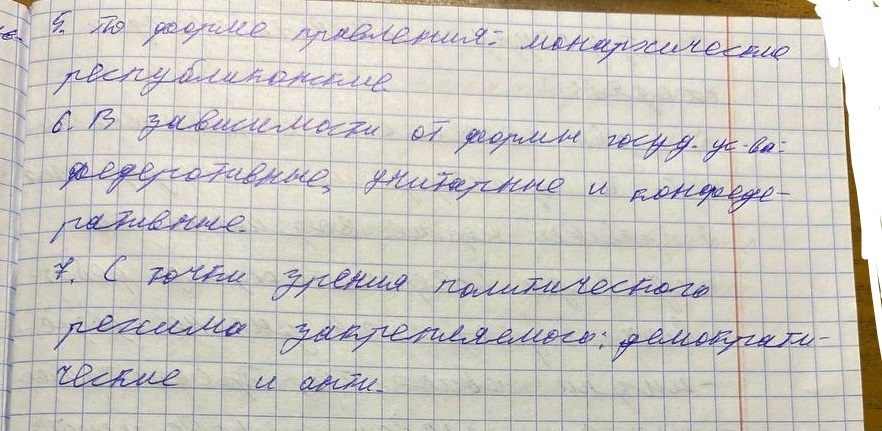 5. По форме правления: монархические
республиканские
6. В зависимости от формы госуд. ус-ва:
федеративные, унитарные и конфеде-
ративные.
7. С точки зрения политического
режима закрепляемого: демократи-
ческие и анти.